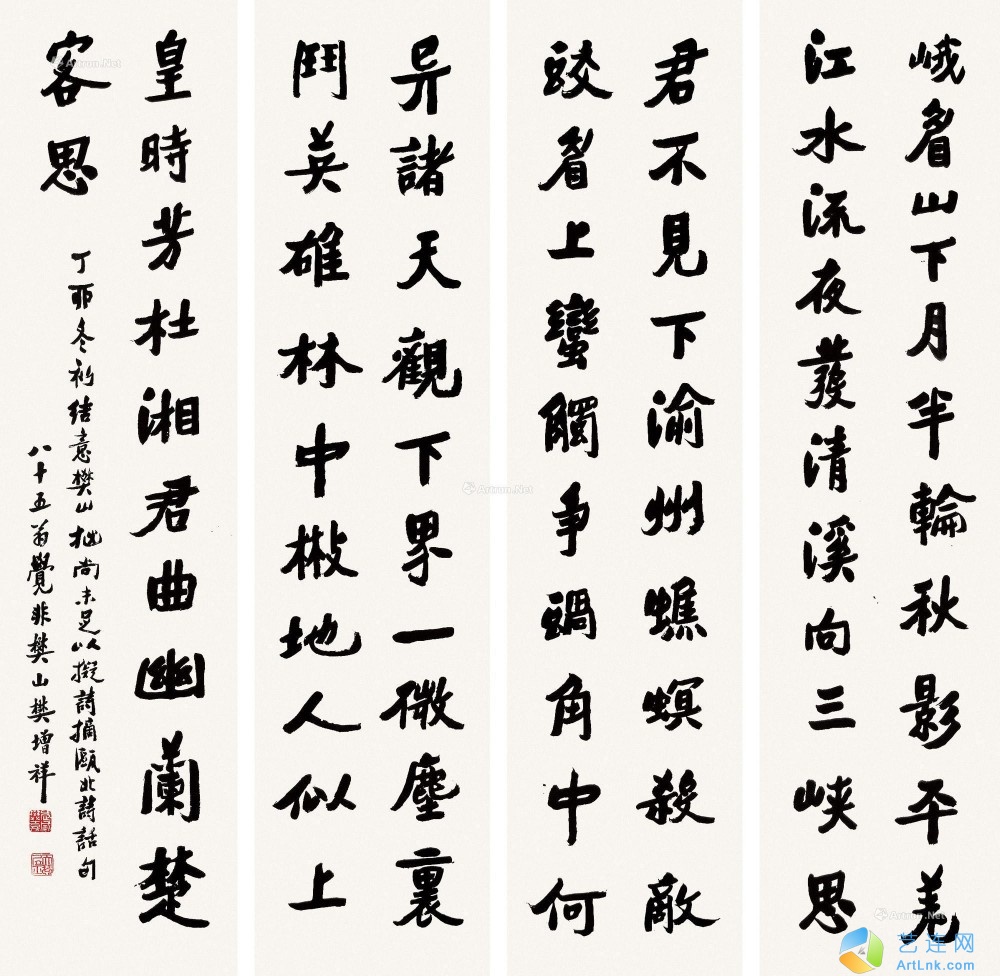 峨眉山下月半輪秋影平羌
江水流夜發清溪向三峽思
君不見下渝州蟭螟殺敵
蚊眉上蠻觸爭蝸角中何
异諸天觀下界一微塵裏
鬥英雄林中地人似上
皇時芳杜湘君曲幽蘭楚
客思
丁卯冬初結意樊山拙尚未足以擬詩摘甌北詩話句
八十五翁覺非樊山樊增祥
Artron.Net
艺连网
ArtLnk.com